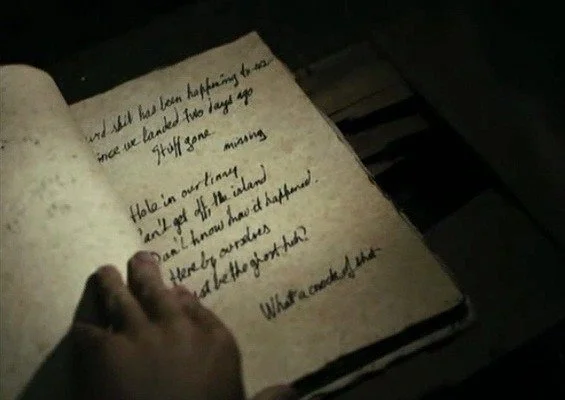 shit has been happening to us
since we landed two days ago
Stuff gone missing
Hole in our dinny
Can't get off the island
Don't know how it happened.
Here by ourselves
must be the ghost huh?
What a crock of shit